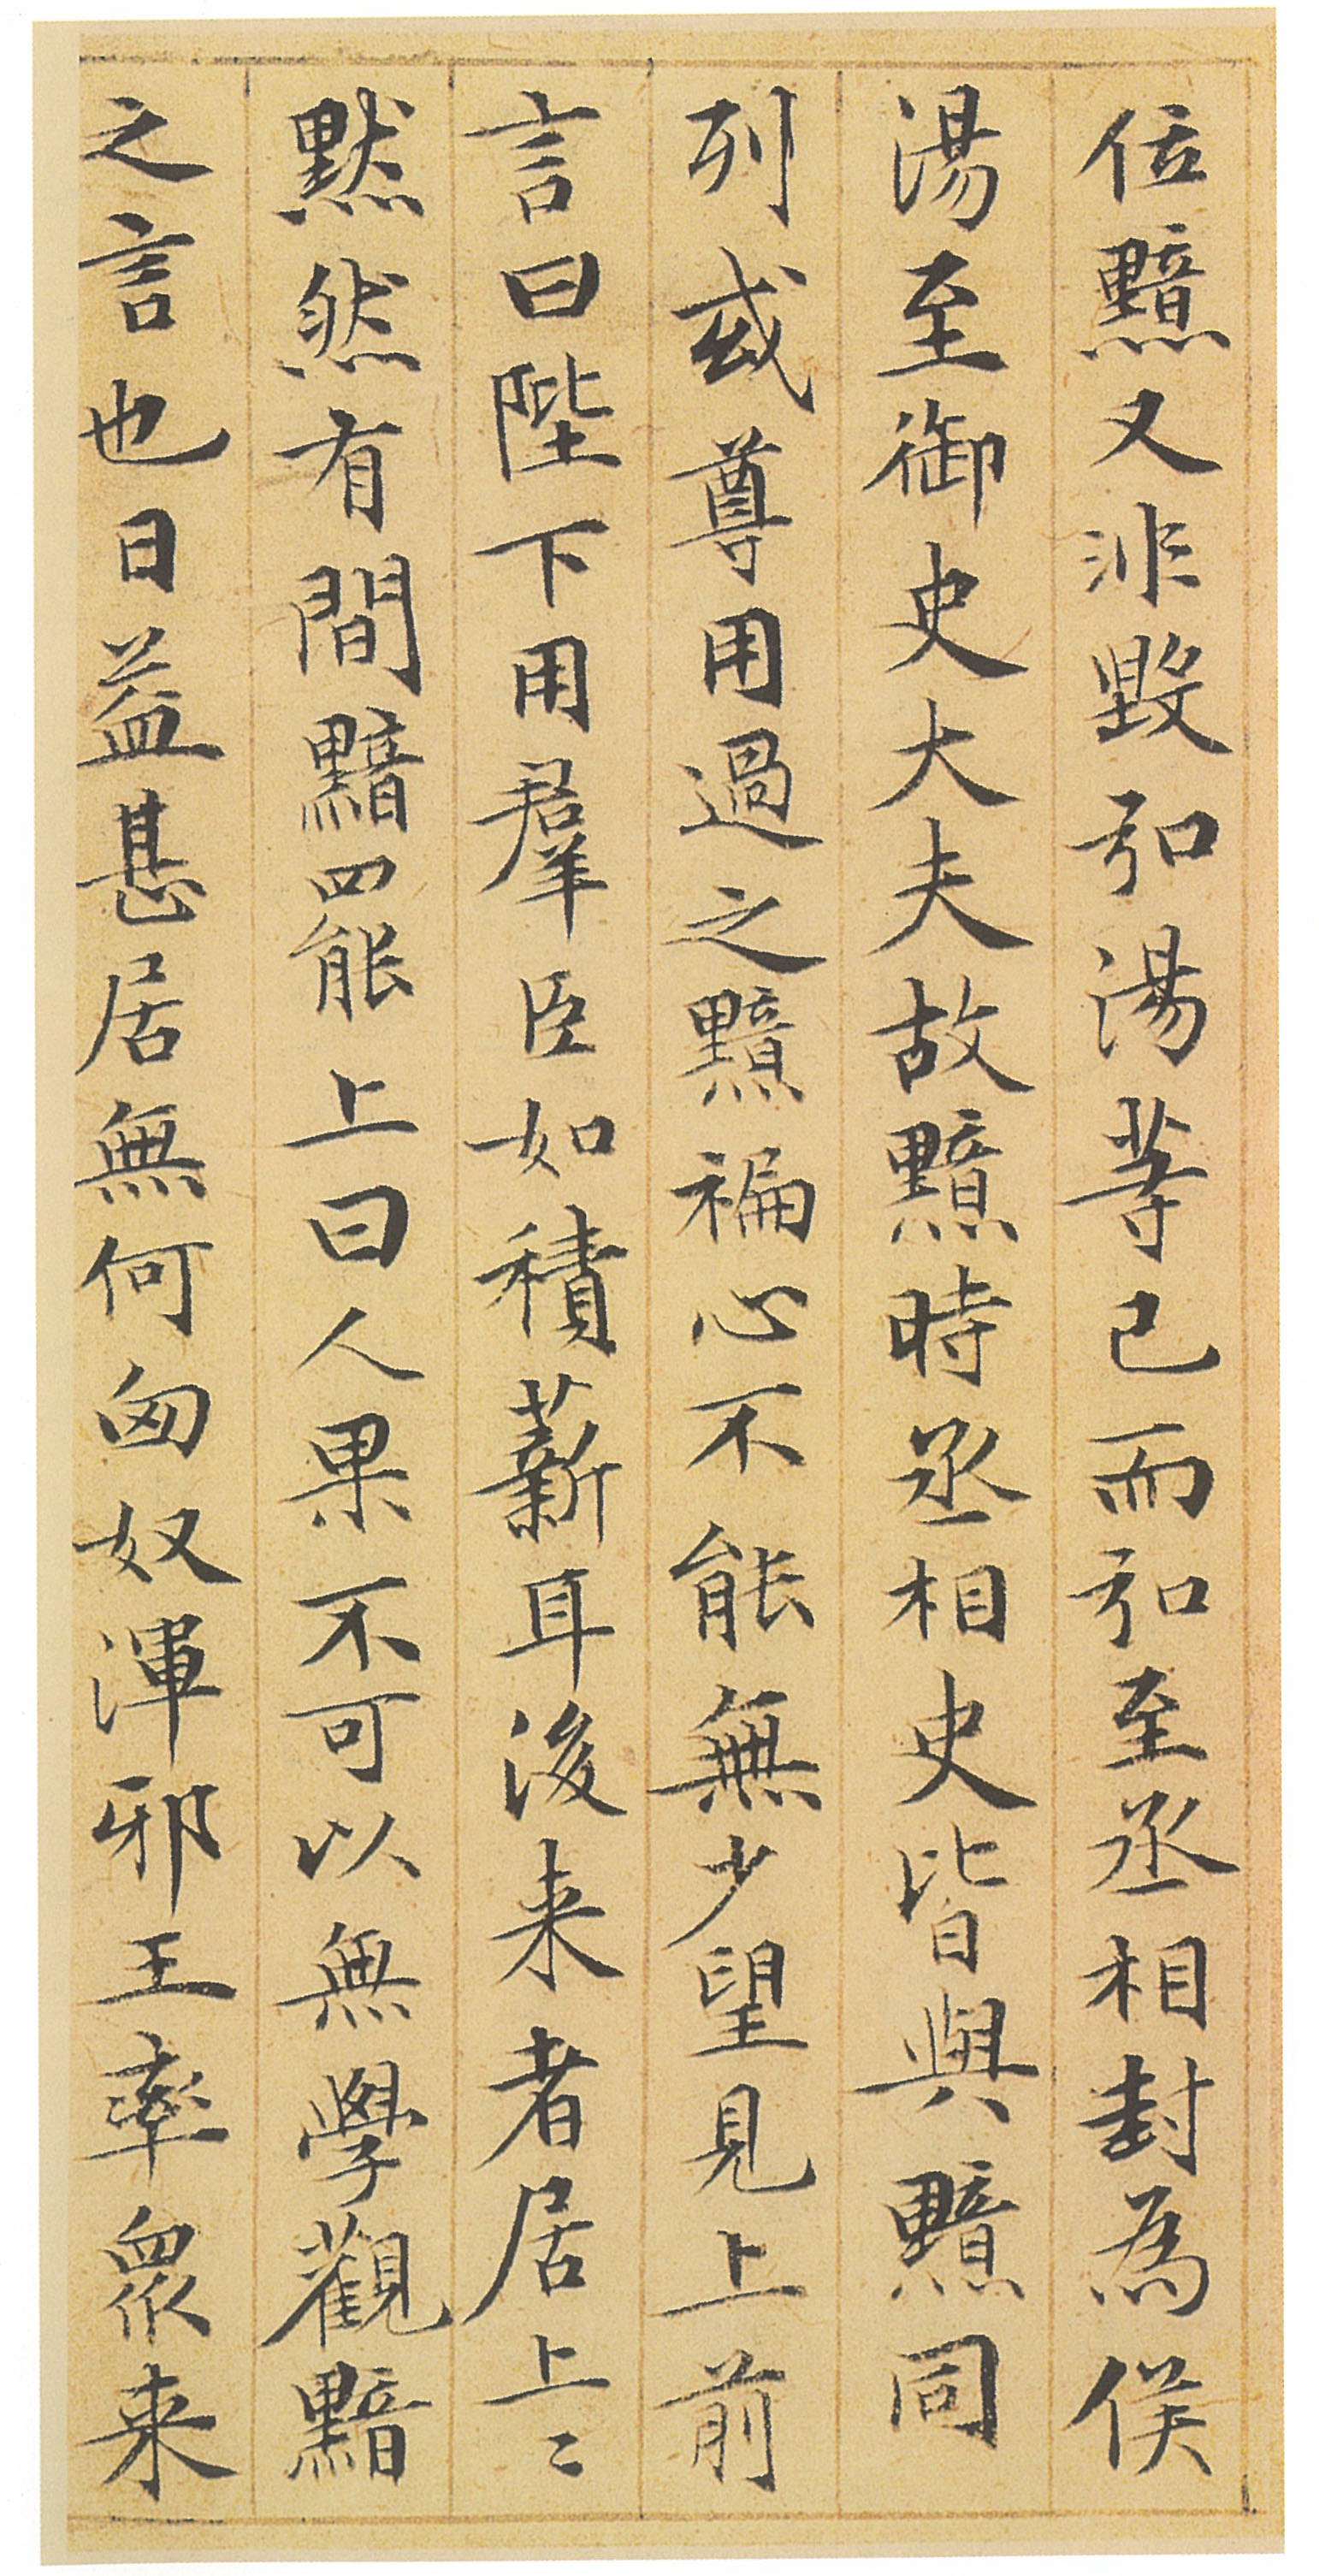 位黯又非毀弘湯等已而弘至丞相封為侯
湯至御史大夫故黯時丞相史皆與黯同
列或尊用過之黯褊心不能無少望見上前
言曰陛下用羣臣如積薪耳後来者居上〻
默然有間黯罷上曰人果不可以無學觀黯
之言也日益甚居無何匈奴渾邪王率眾来